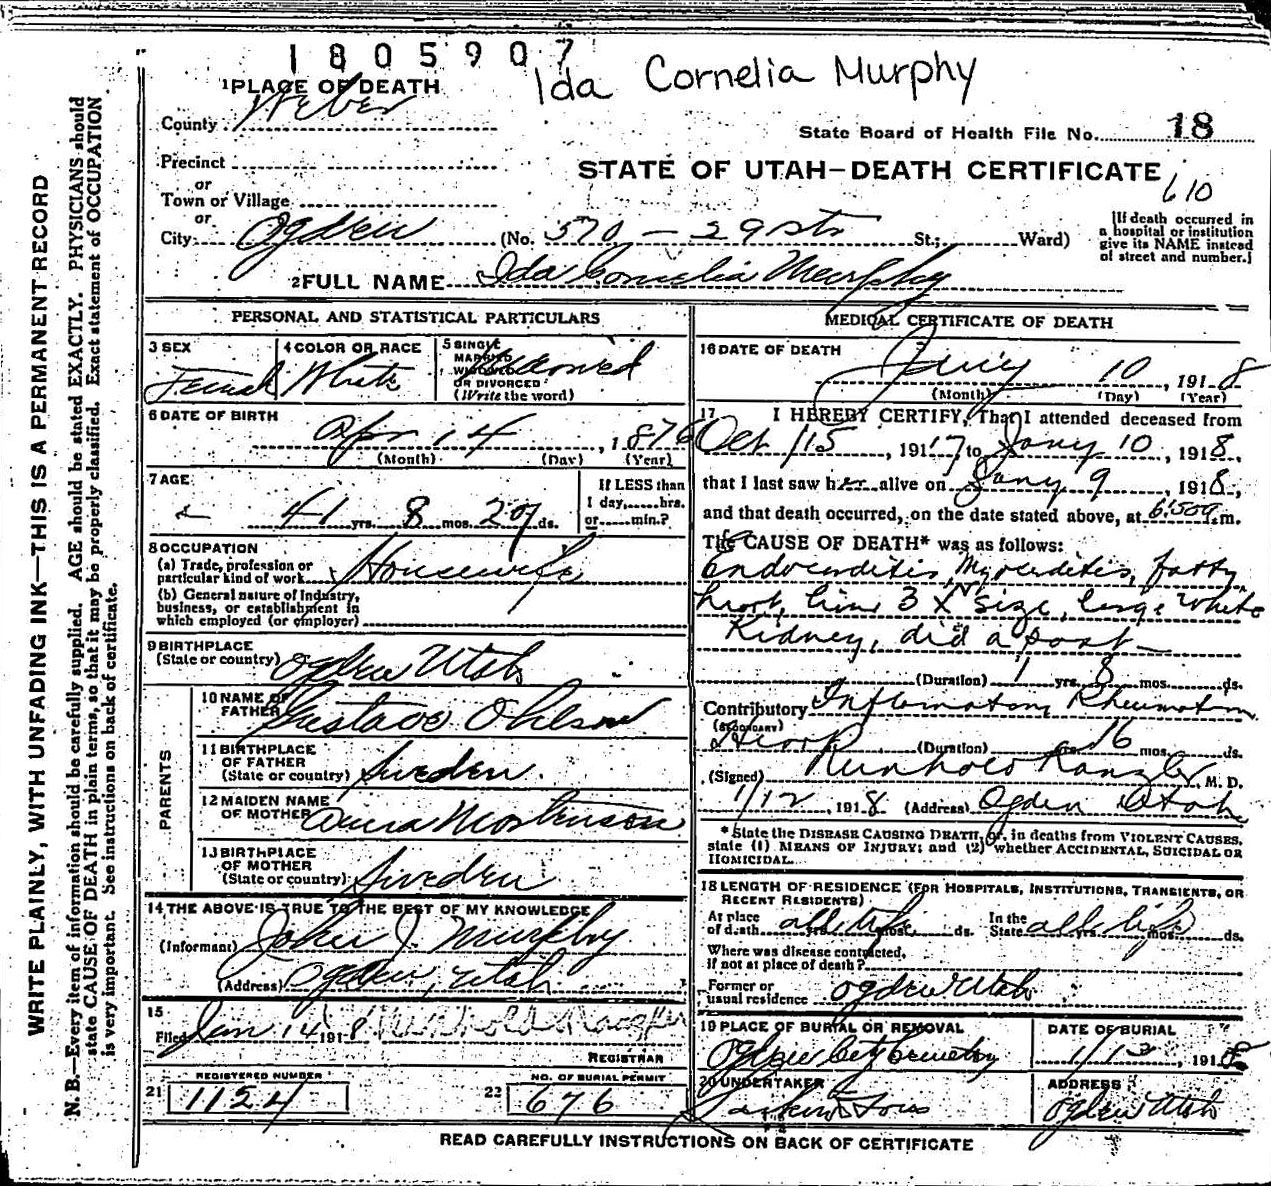 1805907
Ida Cornelia Murphy
1 PLACE OF DEATH
County Weber
State Board of Health File No. 18
Precinct
STATE OF UTAH—DEATH CERTIFICATE
or
Town or Village
610
or
City Ogden (No. 570 - 29 St. St.; Ward)
[If death occurred in a hospital or institution give its NAME instead of street and number.]
2 FULL NAME Ida Cornelia Murphy
PERSONAL AND STATISTICAL PARTICULARS
3 SEX Female
4 COLOR OR RACE White
5 SINGLE MARRIED WIDOWED OR DIVORCED (Write the word)
6 DATE OF BIRTH Apr 14, 1876
(Month) (Day) (Year)
7 AGE 41 yrs. 8 mos. 27 ds.
If LESS than 1 day, hrs. or min.?
8 OCCUPATION
(a) Trade, profession or particular kind of work Housewife
(b) General nature of Industry, business, or establishment in which employed (or employer)
9 BIRTHPLACE
(State or country) Ogden Utah
PARENTS
10 NAME OF FATHER Gustave Ohlson
11 BIRTHPLACE OF FATHER (State or country) Sweden.
12 MAIDEN NAME OF MOTHER Mortenson
13 BIRTHPLACE OF MOTHER (State or country) Sweden
14 THE ABOVE IS TRUE TO THE BEST OF MY KNOWLEDGE
(Informant) John J. Murphy
(Address) Ogden, Utah
15
Filed Jan 14 1918
REGISTRAR
21 REGISTERED NUMBER 1154
22 NO. OF BURIAL PERMIT 676
MEDICAL CERTIFICATE OF DEATH
16 DATE OF DEATH
Jany 10, 1918
(Month) (Day) (Year)
17 I HEREBY CERTIFY, That I attended deceased from
Oct 15, 1917, to Jany 10, 1918,
that I last saw her alive on Jany 9, 1918,
and that death occurred, on the date stated above, at 6:50 a.m.
The CAUSE OF DEATH* was as follows:
Endocarditis, Myocarditis, fatty
3 X size, large White
Kidney, did a post—
(Duration) 1 yrs. 8 mos. ds.
Contributory Inflamatory Rheumatism
(SECONDARY)
(Duration) yrs. 16 mos. ds.
(Signed) Kanzler, M. D.
1/12, 1918 (Address) Ogden Utah
* State the DISEASE CAUSING DEATH, or, in deaths from VIOLENT CAUSES, state (1) MEANS OF INJURY; and (2) whether ACCIDENTAL, SUICIDAL OR HOMICIDAL.
18 LENGTH OF RESIDENCE (FOR HOSPITALS, INSTITUTIONS, TRANSIENTS, OR RECENT RESIDENTS)
At place of death all life yrs. mos. ds. In the State all life yrs. mos. ds.
Where was disease contracted, if not at place of death?
Former or usual residence Ogden Utah
19 PLACE OF BURIAL OR REMOVAL
Ogden City Cemetery
DATE OF BURIAL
1/13, 1918
20 UNDERTAKER
Larkin & Sons
ADDRESS
Ogden Utah
READ CAREFULLY INSTRUCTIONS ON BACK OF CERTIFICATE
WRITE PLAINLY, WITH UNFADING INK—THIS IS A PERMANENT RECORD
N. B.—Every item of information should be carefully supplied. AGE should be stated EXACTLY. PHYSICIANS should
state CAUSE OF DEATH in plain terms, so that it may be properly classified. Exact statement of OCCUPATION
is very important. See instructions on back of certificate.